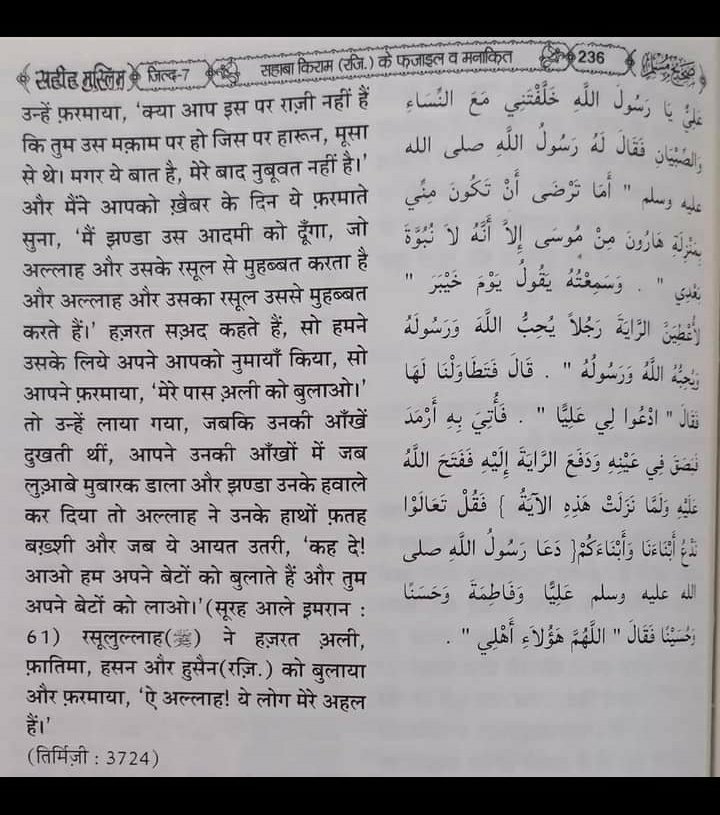 सहीह मुस्लिम जिल्द-7 सहाबा किराम (रज़ि.) के फ़ज़ाइल व मनाकित 236 صحيح مسلم
उन्हें फ़रमाया, 'क्या आप इस पर राज़ी नहीं हैं
कि तुम उस मक़ाम पर हो जिस पर हारून, मूसा
से थे। मगर ये बात है, मेरे बाद नुबूवत नहीं है।'
और मैंने आपको ख़ैबर के दिन ये फ़रमाते
सुना, 'मैं झण्डा उस आदमी को दूँगा, जो
अल्लाह और उसके रसूल से मुहब्बत करता है
और अल्लाह और उसका रसूल उससे मुहब्बत
करते हैं।' हज़रत सअ़द कहते हैं, सो हमने
उसके लिये अपने आपको नुमायाँ किया, सो
आपने फ़रमाया, 'मेरे पास अ़ली को बुलाओ।'
तो उन्हें लाया गया, जबकि उनकी आँखें
दुखती थीं, आपने उनकी आँखों में जब
लुआ़बे मुबारक डाला और झण्डा उनके हवाले
कर दिया तो अल्लाह ने उनके हाथों फ़तह
बख़्शी और जब ये आयत उतरी, 'कह दे!
आओ हम अपने बेटों को बुलाते हैं और तुम
अपने बेटों को लाओ।'(सूरह आले इमरान :
61) रसूलुल्लाह(ﷺ) ने हज़रत अ़ली,
फ़ातिमा, हसन और हुसैन(रज़ि.) को बुलाया
और फ़रमाया, 'ऐ अल्लाह! ये लोग मेरे अहल
हैं।'
(तिर्मिज़ी : 3724)
عَلِيٌّ يَا رَسُولَ اللَّهِ خَلَّفْتَنِي مَعَ النِّسَاءِ
وَالصِّبْيَانِ فَقَالَ لَهُ رَسُولُ اللَّهِ صلى الله
عليه وسلم " أَمَا تَرْضَى أَنْ تَكُونَ مِنِّي
بِمَنْزِلَةِ هَارُونَ مِنْ مُوسَى إِلاَّ أَنَّهُ لاَ نُبُوَّةَ
بَعْدِي " . وَسَمِعْتُهُ يَقُولُ يَوْمَ خَيْبَرَ "
لأُعْطِيَنَّ الرَّايَةَ رَجُلاً يُحِبُّ اللَّهَ وَرَسُولَهُ
وَيُحِبُّهُ اللَّهُ وَرَسُولُهُ " . قَالَ فَتَطَاوَلْنَا لَهَا
فَقَالَ " ادْعُوا لِي عَلِيًّا " . فَأُتِيَ بِهِ أَرْمَدَ
فَبَصَقَ فِي عَيْنِهِ وَدَفَعَ الرَّايَةَ إِلَيْهِ فَفَتَحَ اللَّهُ
عَلَيْهِ وَلَمَّا نَزَلَتْ هَذِهِ الآيَةُ { فَقُلْ تَعَالَوْا
نَدْعُ أَبْنَاءَنَا وَأَبْنَاءَكُمْ} دَعَا رَسُولُ اللَّهِ صلى
الله عليه وسلم عَلِيًّا وَفَاطِمَةَ وَحَسَنًا
وَحُسَيْنًا فَقَالَ " اللَّهُمَّ هَؤُلاَءِ أَهْلِي " .